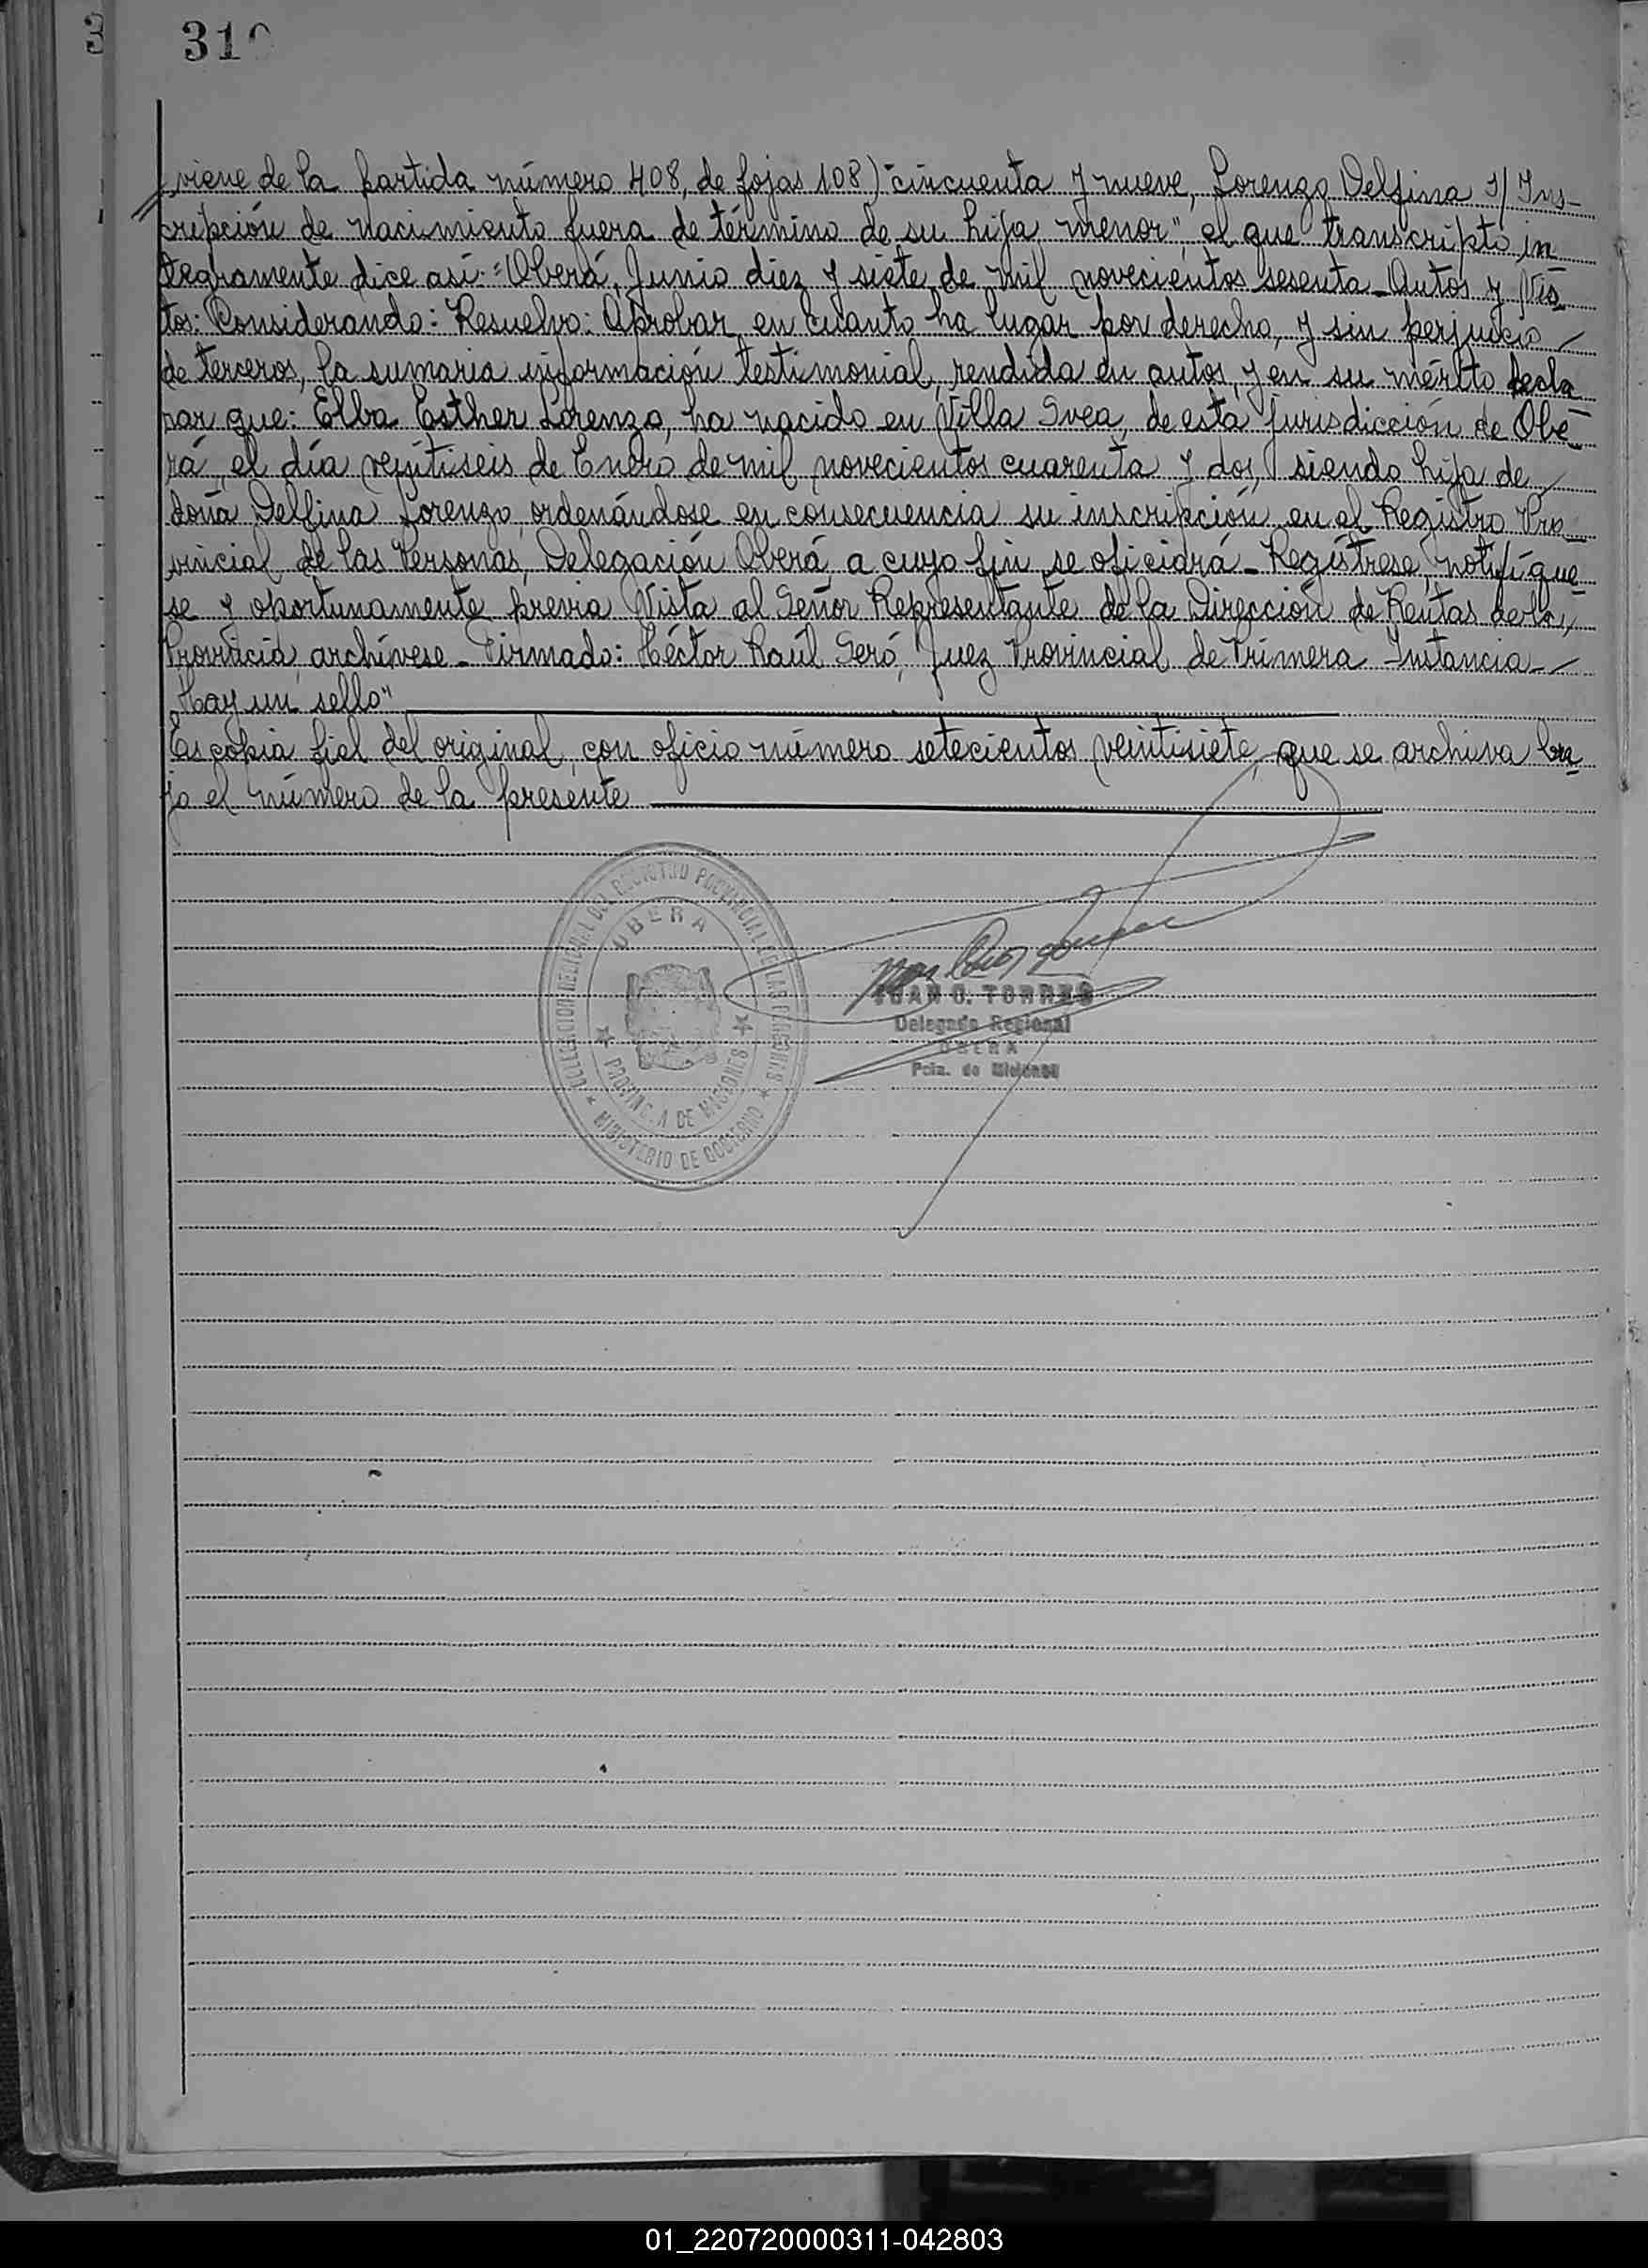 3
310
viene de la partida número 408, de fojas 108) "cincuenta y nueve, Lorenzo Delfina s/ Ins-
cripción de nacimiento fuera de término de su hija menor", el que transcripto in
tegramente dice así: "Oberá, Junio diez y siete de mil novecientos sesenta - Autos y Vis
tos: Considerando: Resuelvo: Aprobar en cuanto ha lugar por derecho, y sin perjuicio
de terceros, la sumaria información testimonial, rendida en autos, y en su mérito decla
rar que: Elba Esther Lorenzo, ha nacido en Villa Svea, de esta jurisdicción de Obe-
rá, el día veintiseis de Enero de mil novecientos cuarenta y dos, siendo hija de
doña Delfina Lorenzo, ordenándose en consecuencia su inscripción en el Registro Pro-
vincial de las Personas, Delegación Oberá, a cuyo fin se oficiará - Regístrese, notifíque-
se y oportunamente previa Vista al Señor Representante de la Dirección de Rentas de la
Provincia, archívese - Firmado: Héctor Raúl Seró, Juez Provincial de Primera Instancia -
Hay un sello"
Es copia fiel del original, con oficio número setecientos veintisiete, que se archiva ba-
jo el número de la presente
DELEGACION REGIONAL DEL REGISTRO PROVINCIAL DE LAS PERSONAS
OBERA
PROVINCIA DE MISIONES
MINISTERIO DE GOBIERNO
JUAN C. TORRES
Delegado Regional
OBERA
Pcia. de Misiones
01_220720000311-042803